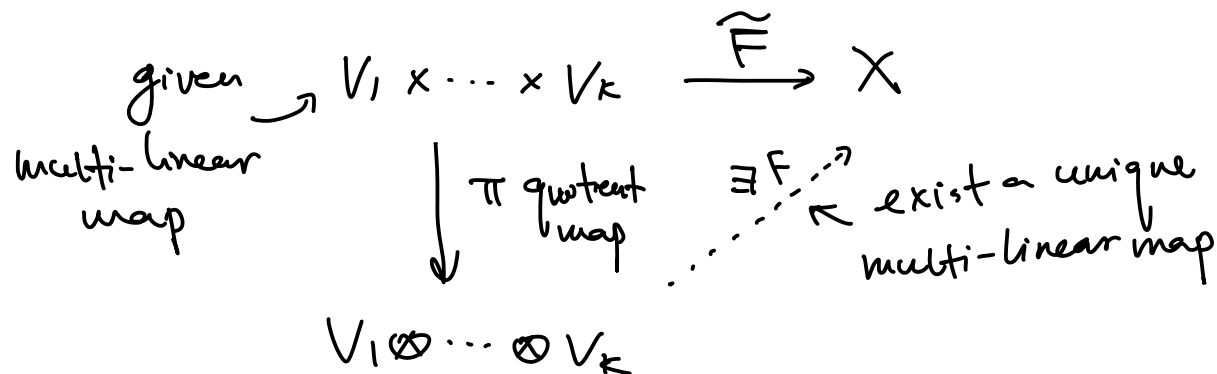 given
multi-linear
map
V₁ × ⋯ × Vₖ
F̃
X
π quotient
map
∃F
exist a unique
multi-linear map
V₁ ⊗ ⋯ ⊗ Vₖ